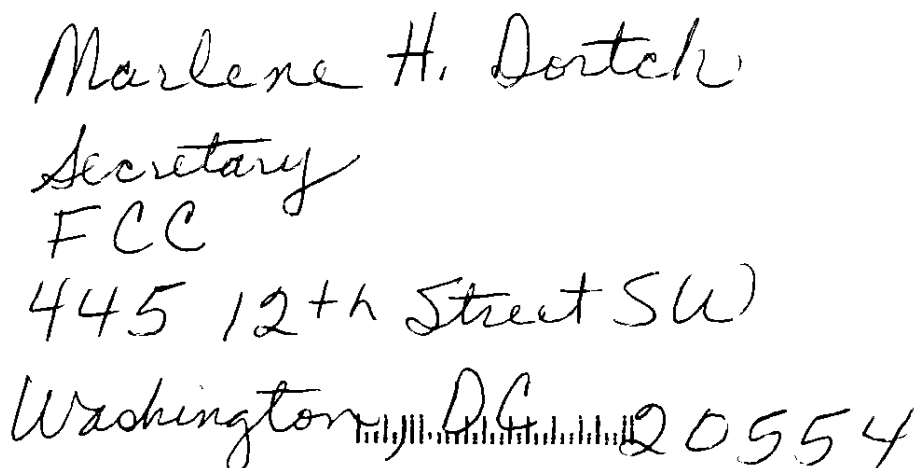 Marlene H. Dortch
Secretary
FCC
445 12th Street SW
Washington, DC 20554